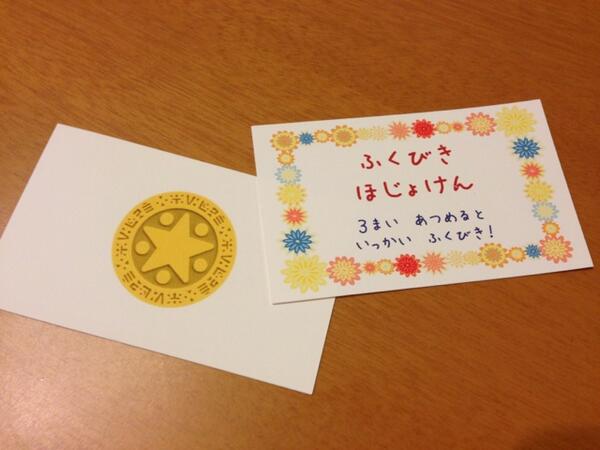 ふくびき
ほじょけん
3まい あつめると
いっかい ふくびき!